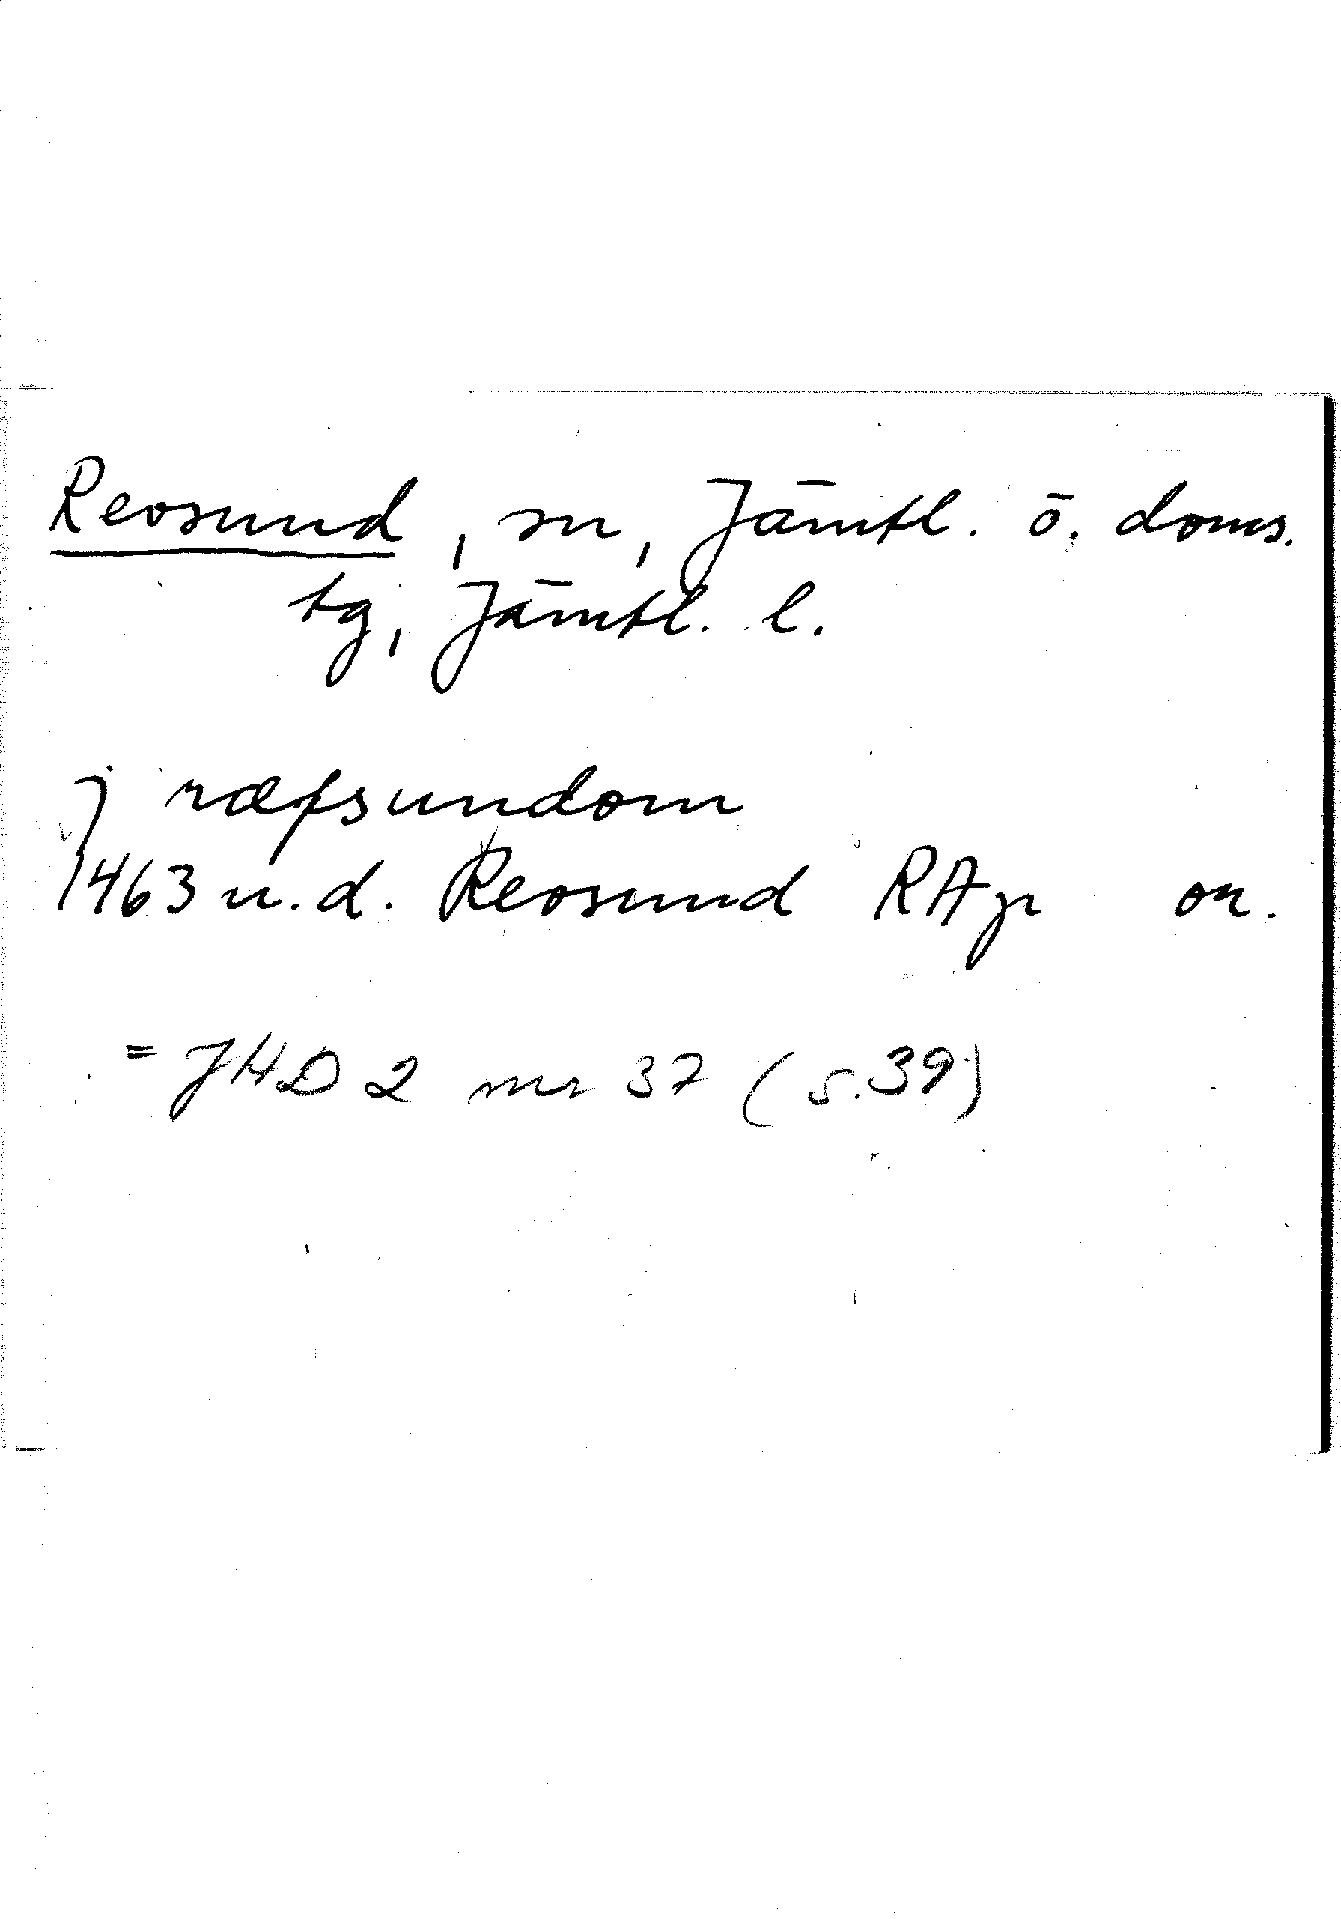 Revsund, sn, Jämtl. ö. doms.
tg, Jämtl. l.
j ræfsundom
1463 u.d. Revsund RAp or.
= JHD 2 nr 37 (s. 39)